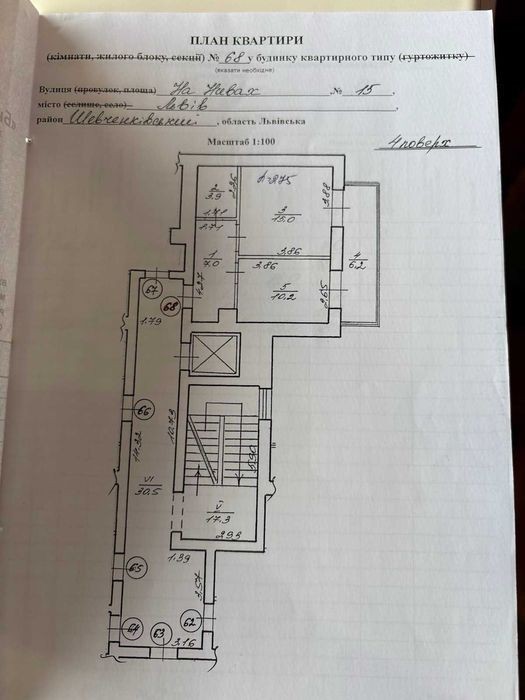 ПЛАН КВАРТИРИ
(кімнати, жилого блоку, секції) № 68 у будинку квартирного типу (гуртожитку)
(вказати необхідне)
Вулиця (провулок, площа) На Нивах № 15,
місто (селище, село) Львів,
район Шевченківський, область Львівська
Масштаб 1:100
4 поверх
h-2.75
2
3.9
2.26
1.71
1.71
3
15.0
3.88
3.86
1
7.0
4.27
4
6.2
3.86
5
10.2
2.65
67
68
1.79
66
14.32
10.73
VI
30.5
5.90
V
17.3
2.93
1.39
65
3.57
64
63
62
3.16